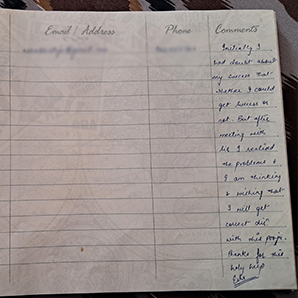 Email / Address Phone Comments
Initially I
had doubt about
my success that
whether I could
get success or
not. But after
meeting with
his I realized
the problems &
I am thinking
& wishing that
I will get
correct dirⁿ
with this pooja.
Thanks for this
holy help